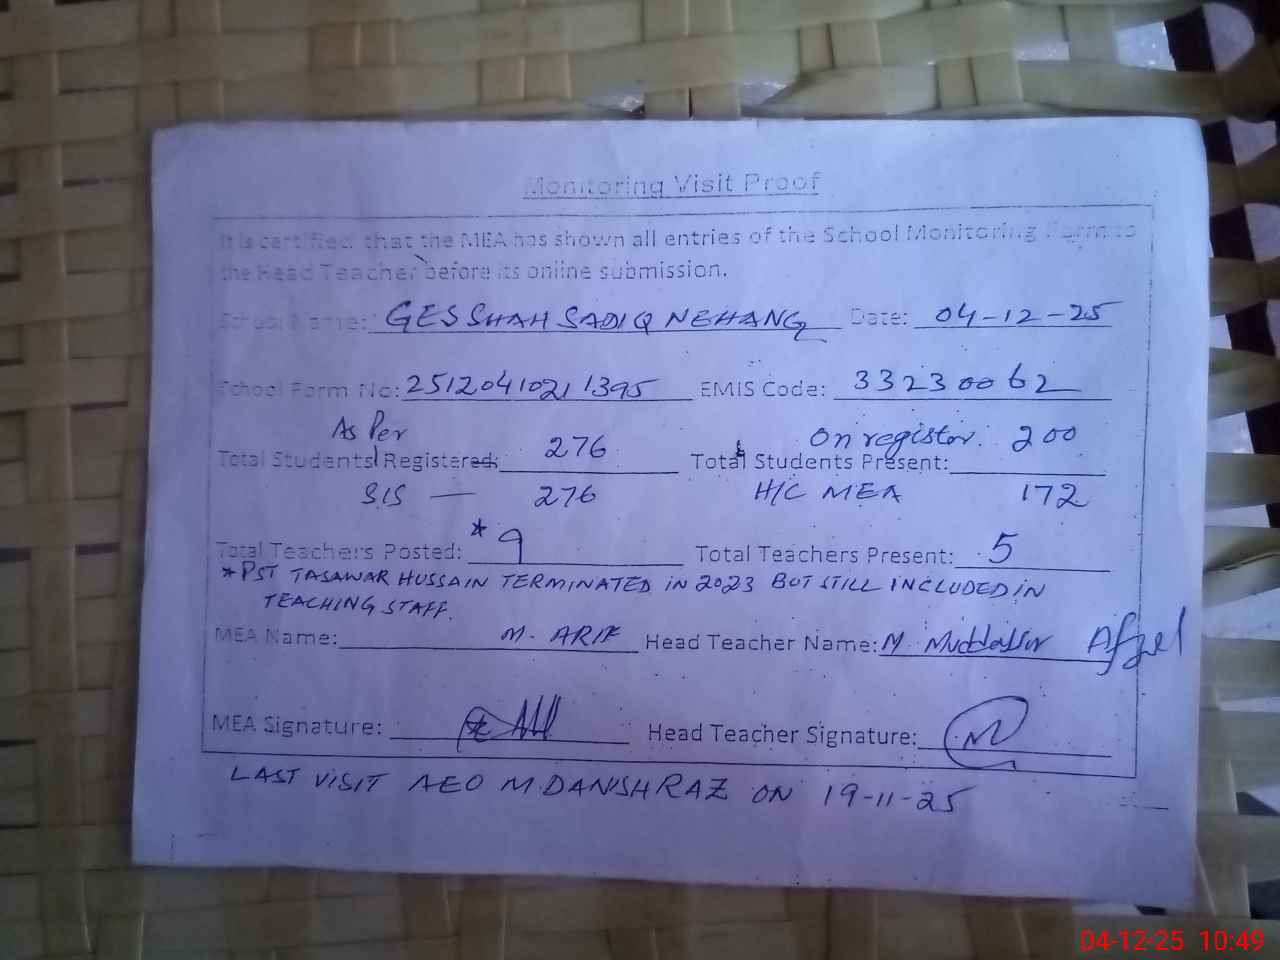 Monitoring Visit Proof
It is certified that the MEA has shown all entries of the School Monitoring Form to
the Head Teacher before its online submission.
School Name: GES SHAH SADIQ NEHANG Date: 04-12-25
School Form No: 2512041021 1395 EMIS Code: 33230062
As Per 276 On register. 200
Total Students Registered: Total Students Present:
SIS — 276 H/C MEA 172
Total Teachers Posted: *9 Total Teachers Present: 5
*PST TASAWAR HUSSAIN TERMINATED IN 2023 BUT STILL INCLUDED IN
TEACHING STAFF.
MEA Name: M. ARIF Head Teacher Name: M. Muddassir Afzal
MEA Signature: Head Teacher Signature:
LAST VISIT AEO M.DANISH RAZ ON 19-11-25
04-12-25 10:49